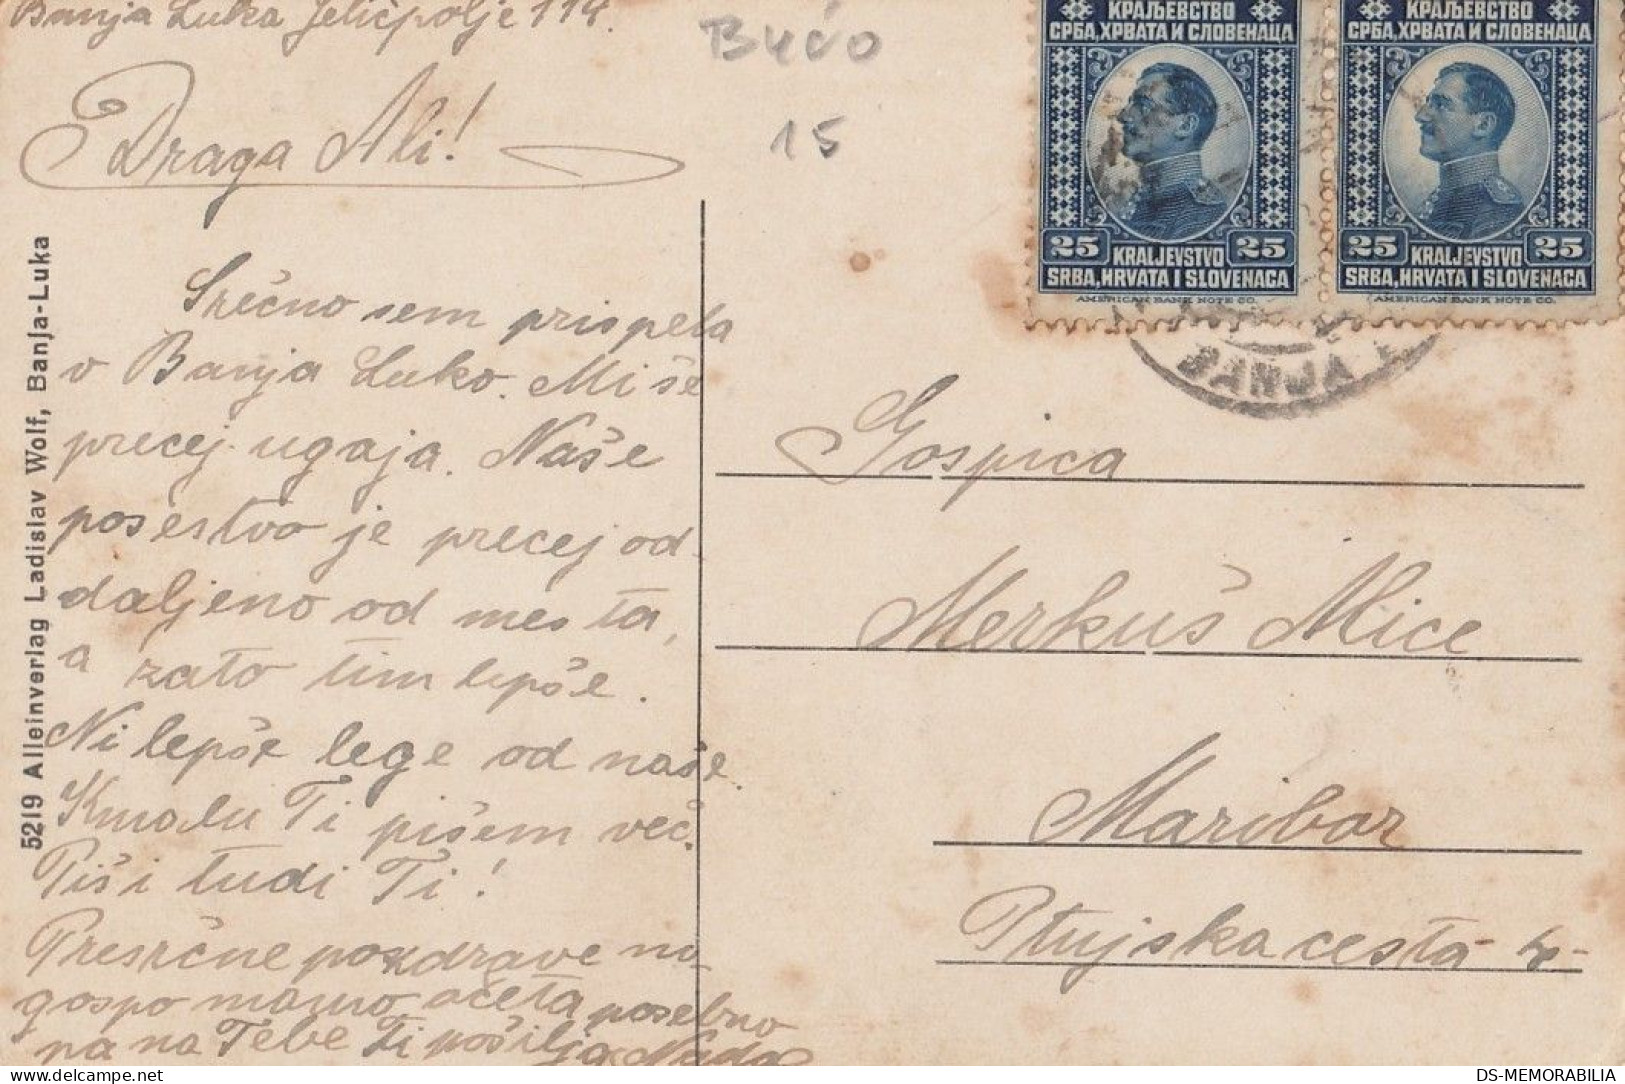 Banja Luka Jeličpolje 114.
Draga Ali!
Srečno sem prispela
v Banja Luko. Mi še
precej ugaja. Naše
posestvo je precej od
daljeno od mesta,
a zato tim lepše.
Ni lepše lege od naše
Kmalu Ti pišem več.
Piši tudi Ti!
Presrčne pozdrave na
gospo mamo, očeta posebno
pa na Tebe Ti pošilja Nada
5219 Alleinverlag Ladislav Wolf, Banja-Luka
15
КРАЉЕВСТВО
СРБА, ХРВАТА И СЛОВЕНАЦА
25 KRALJEVSTVO 25
SRBA, HRVATA I SLOVENACA
AMERICAN BANK NOTE CO.
КРАЉЕВСТВО
СРБА, ХРВАТА И СЛОВЕНАЦА
25 KRALJEVSTVO 25
SRBA, HRVATA I SLOVENACA
AMERICAN BANK NOTE CO.
BANJA
Gospica
Merkuš Mice
Maribor
Ptujska cesta
DS-MEMORABILIA